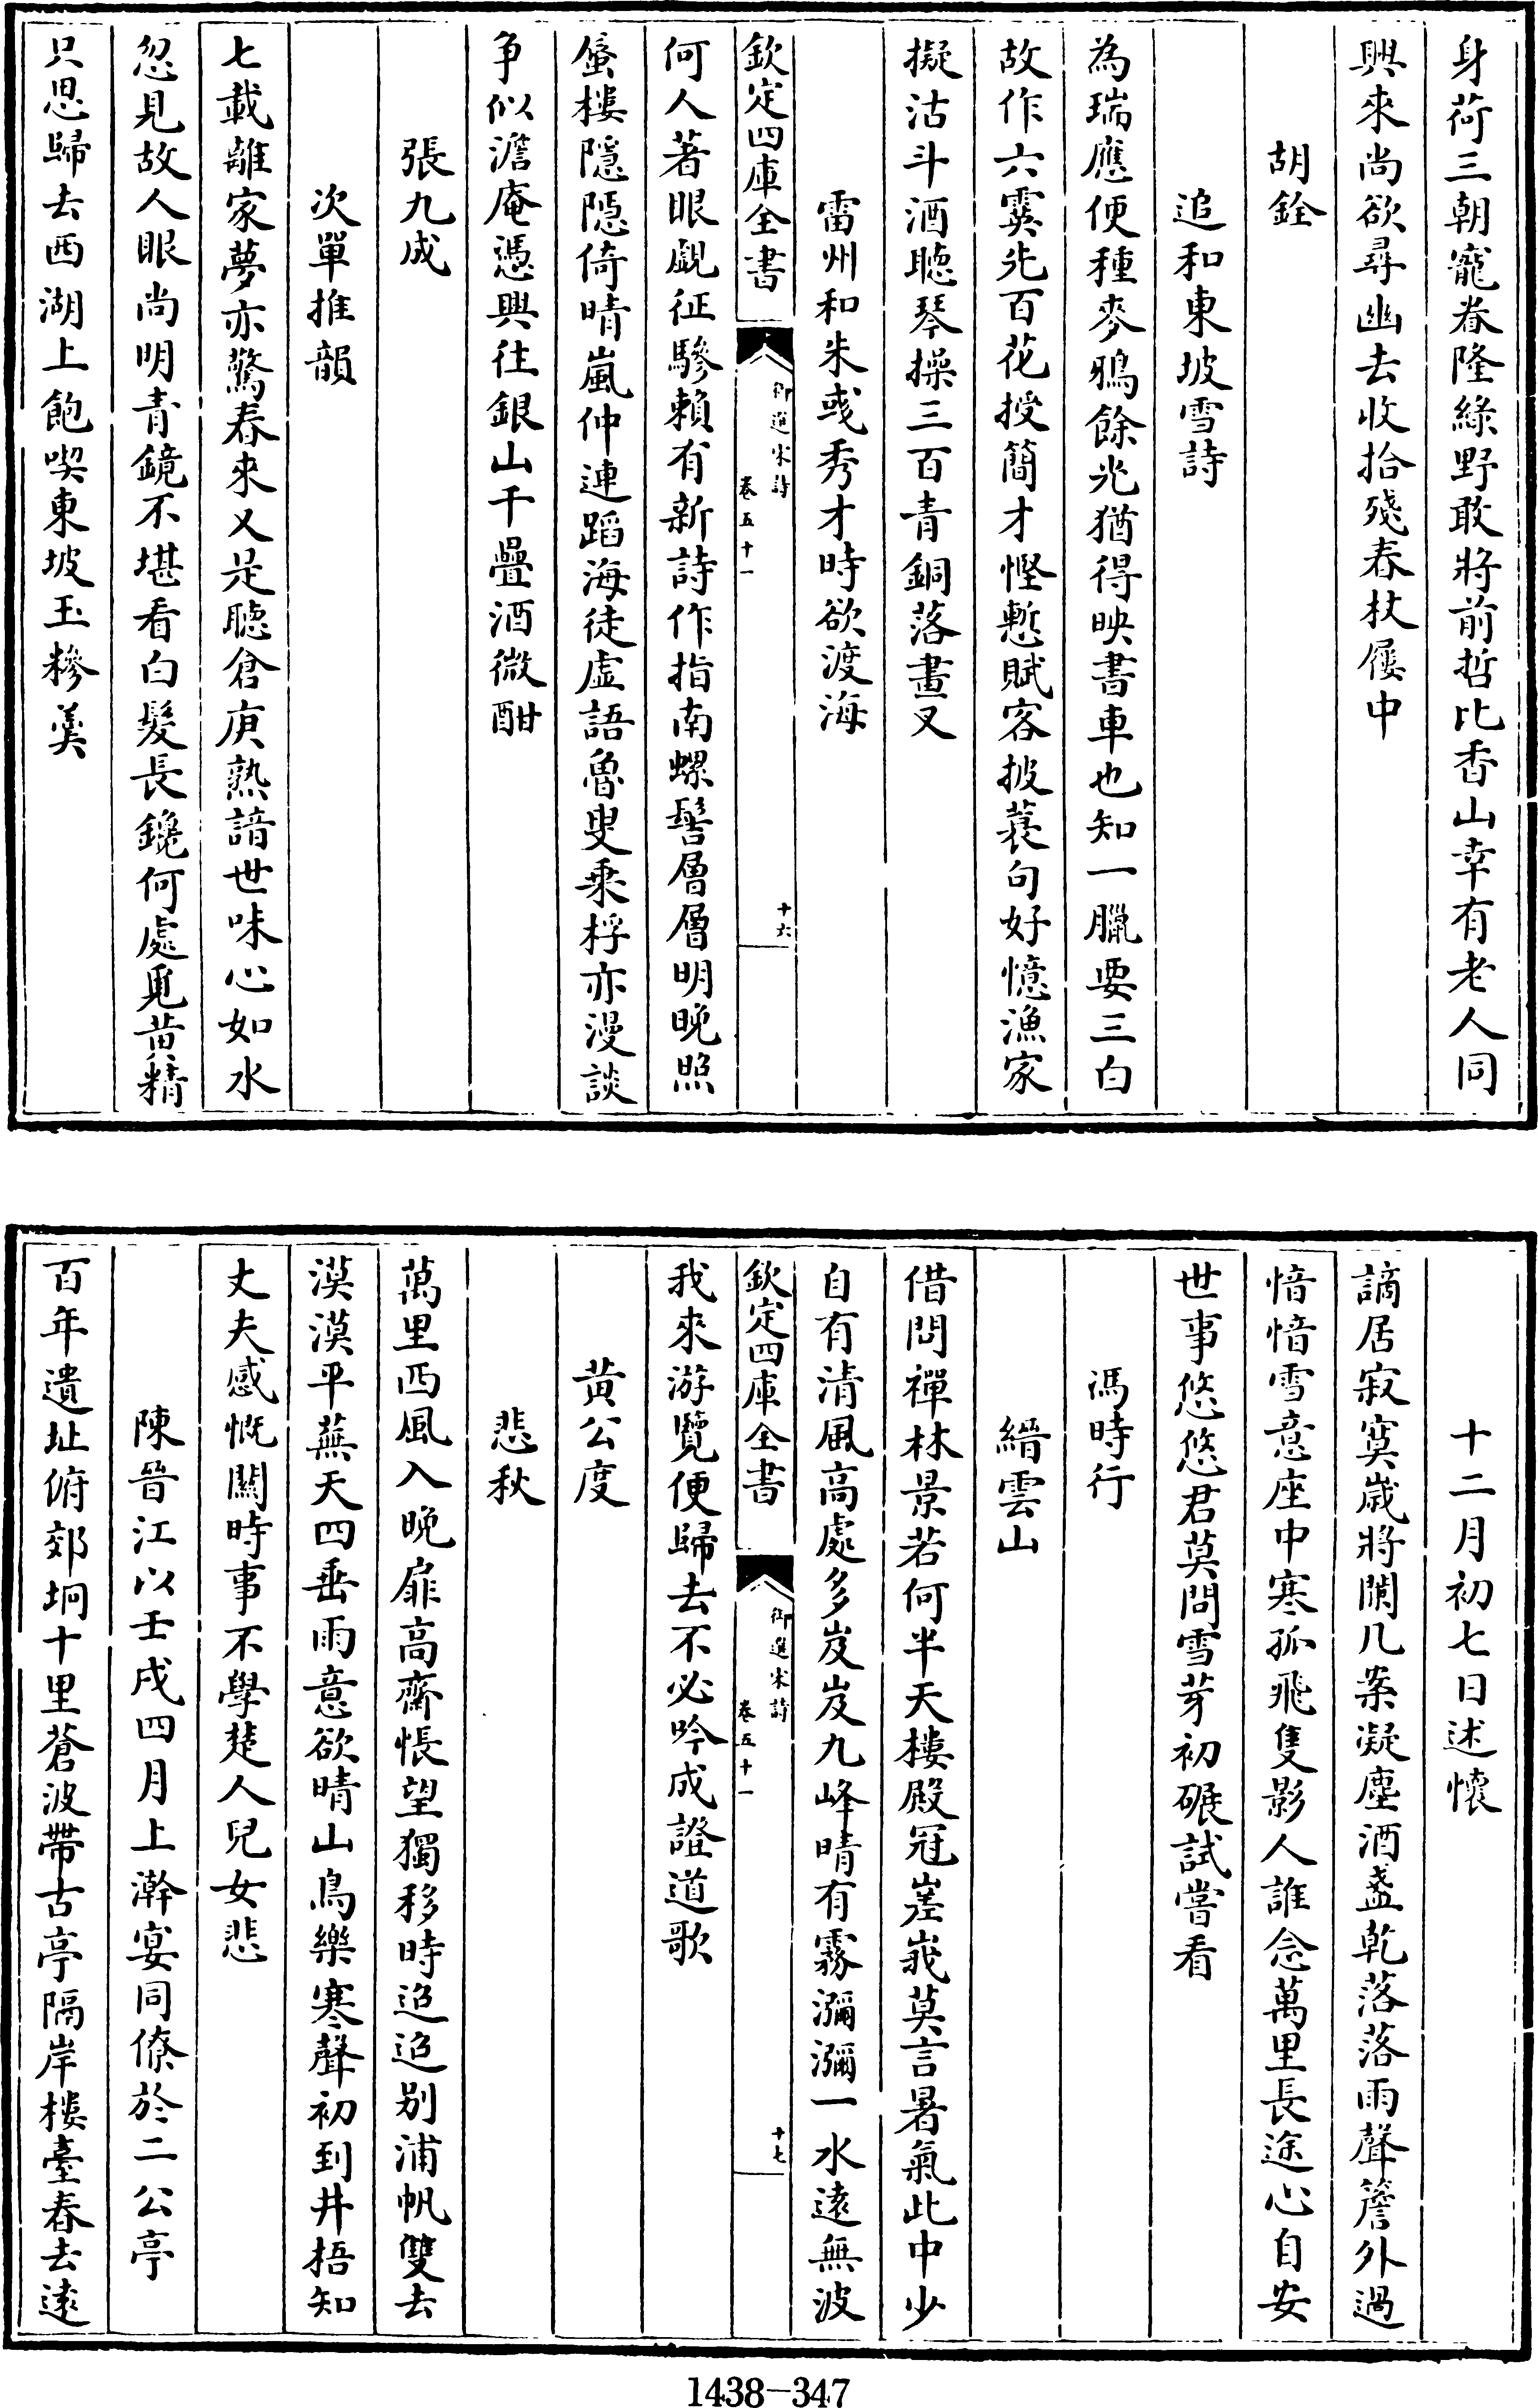 身荷三朝寵眷隆綠野敢將前哲比香山幸有老人同
興來尚欲尋幽去收拾殘春杖屨中
胡銓
追和東坡雪詩
為瑞應便種麥鴉餘光猶得映書車也知一臘要三白
故作六霙先百花授簡才慳慙賦客披蓑句好憶漁家
擬沽斗酒聽琴操三百青銅落畫叉
雷州和朱彧秀才時欲渡海
欽定四庫全書
御選宋詩
卷五十一
十六
何人著眼覷征驂賴有新詩作指南螺髻層層明晚照
蜃樓隱隱倚晴嵐仲連蹈海徒虛語魯叟乗桴亦漫談
争似澹庵憑興往銀山千疊酒微酣
張九成
次單推韻
七載離家夢亦驚春來又是聽倉庚熟諳世味心如水
忽見故人眼尚明青鏡不堪看白髮長鑱何處覓黄精
只思歸去西湖上飽喫東坡玉糝羹
十二月初七日述懷
謫居寂寞歲將闌几案凝塵酒盞乾落落雨聲簷外過
愔愔雪意座中寒孤飛隻影人誰念萬里長途心自安
世事悠悠君莫問雪芽初碾試嘗看
馮時行
縉雲山
借問禪林景若何半天樓殿冠嵳峩莫言暑氣此中少
自有清風高處多岌岌九峰晴有霧瀰瀰一水遠無波
欽定四庫全書
御選宋詩
卷五十一
十七
我來游覽便歸去不必吟成證道歌
黄公度
悲秋
萬里西風入晚扉高齋悵望獨移時迢迢别浦帆雙去
漠漠平蕪天四垂雨意欲晴山鳥樂寒聲初到井梧知
丈夫感慨關時事不學楚人兒女悲
陳晉江以壬戌四月上澣宴同僚於二公亭
百年遺址俯郊坰十里蒼波帶古亭隔岸樓臺春去遠
1438-347